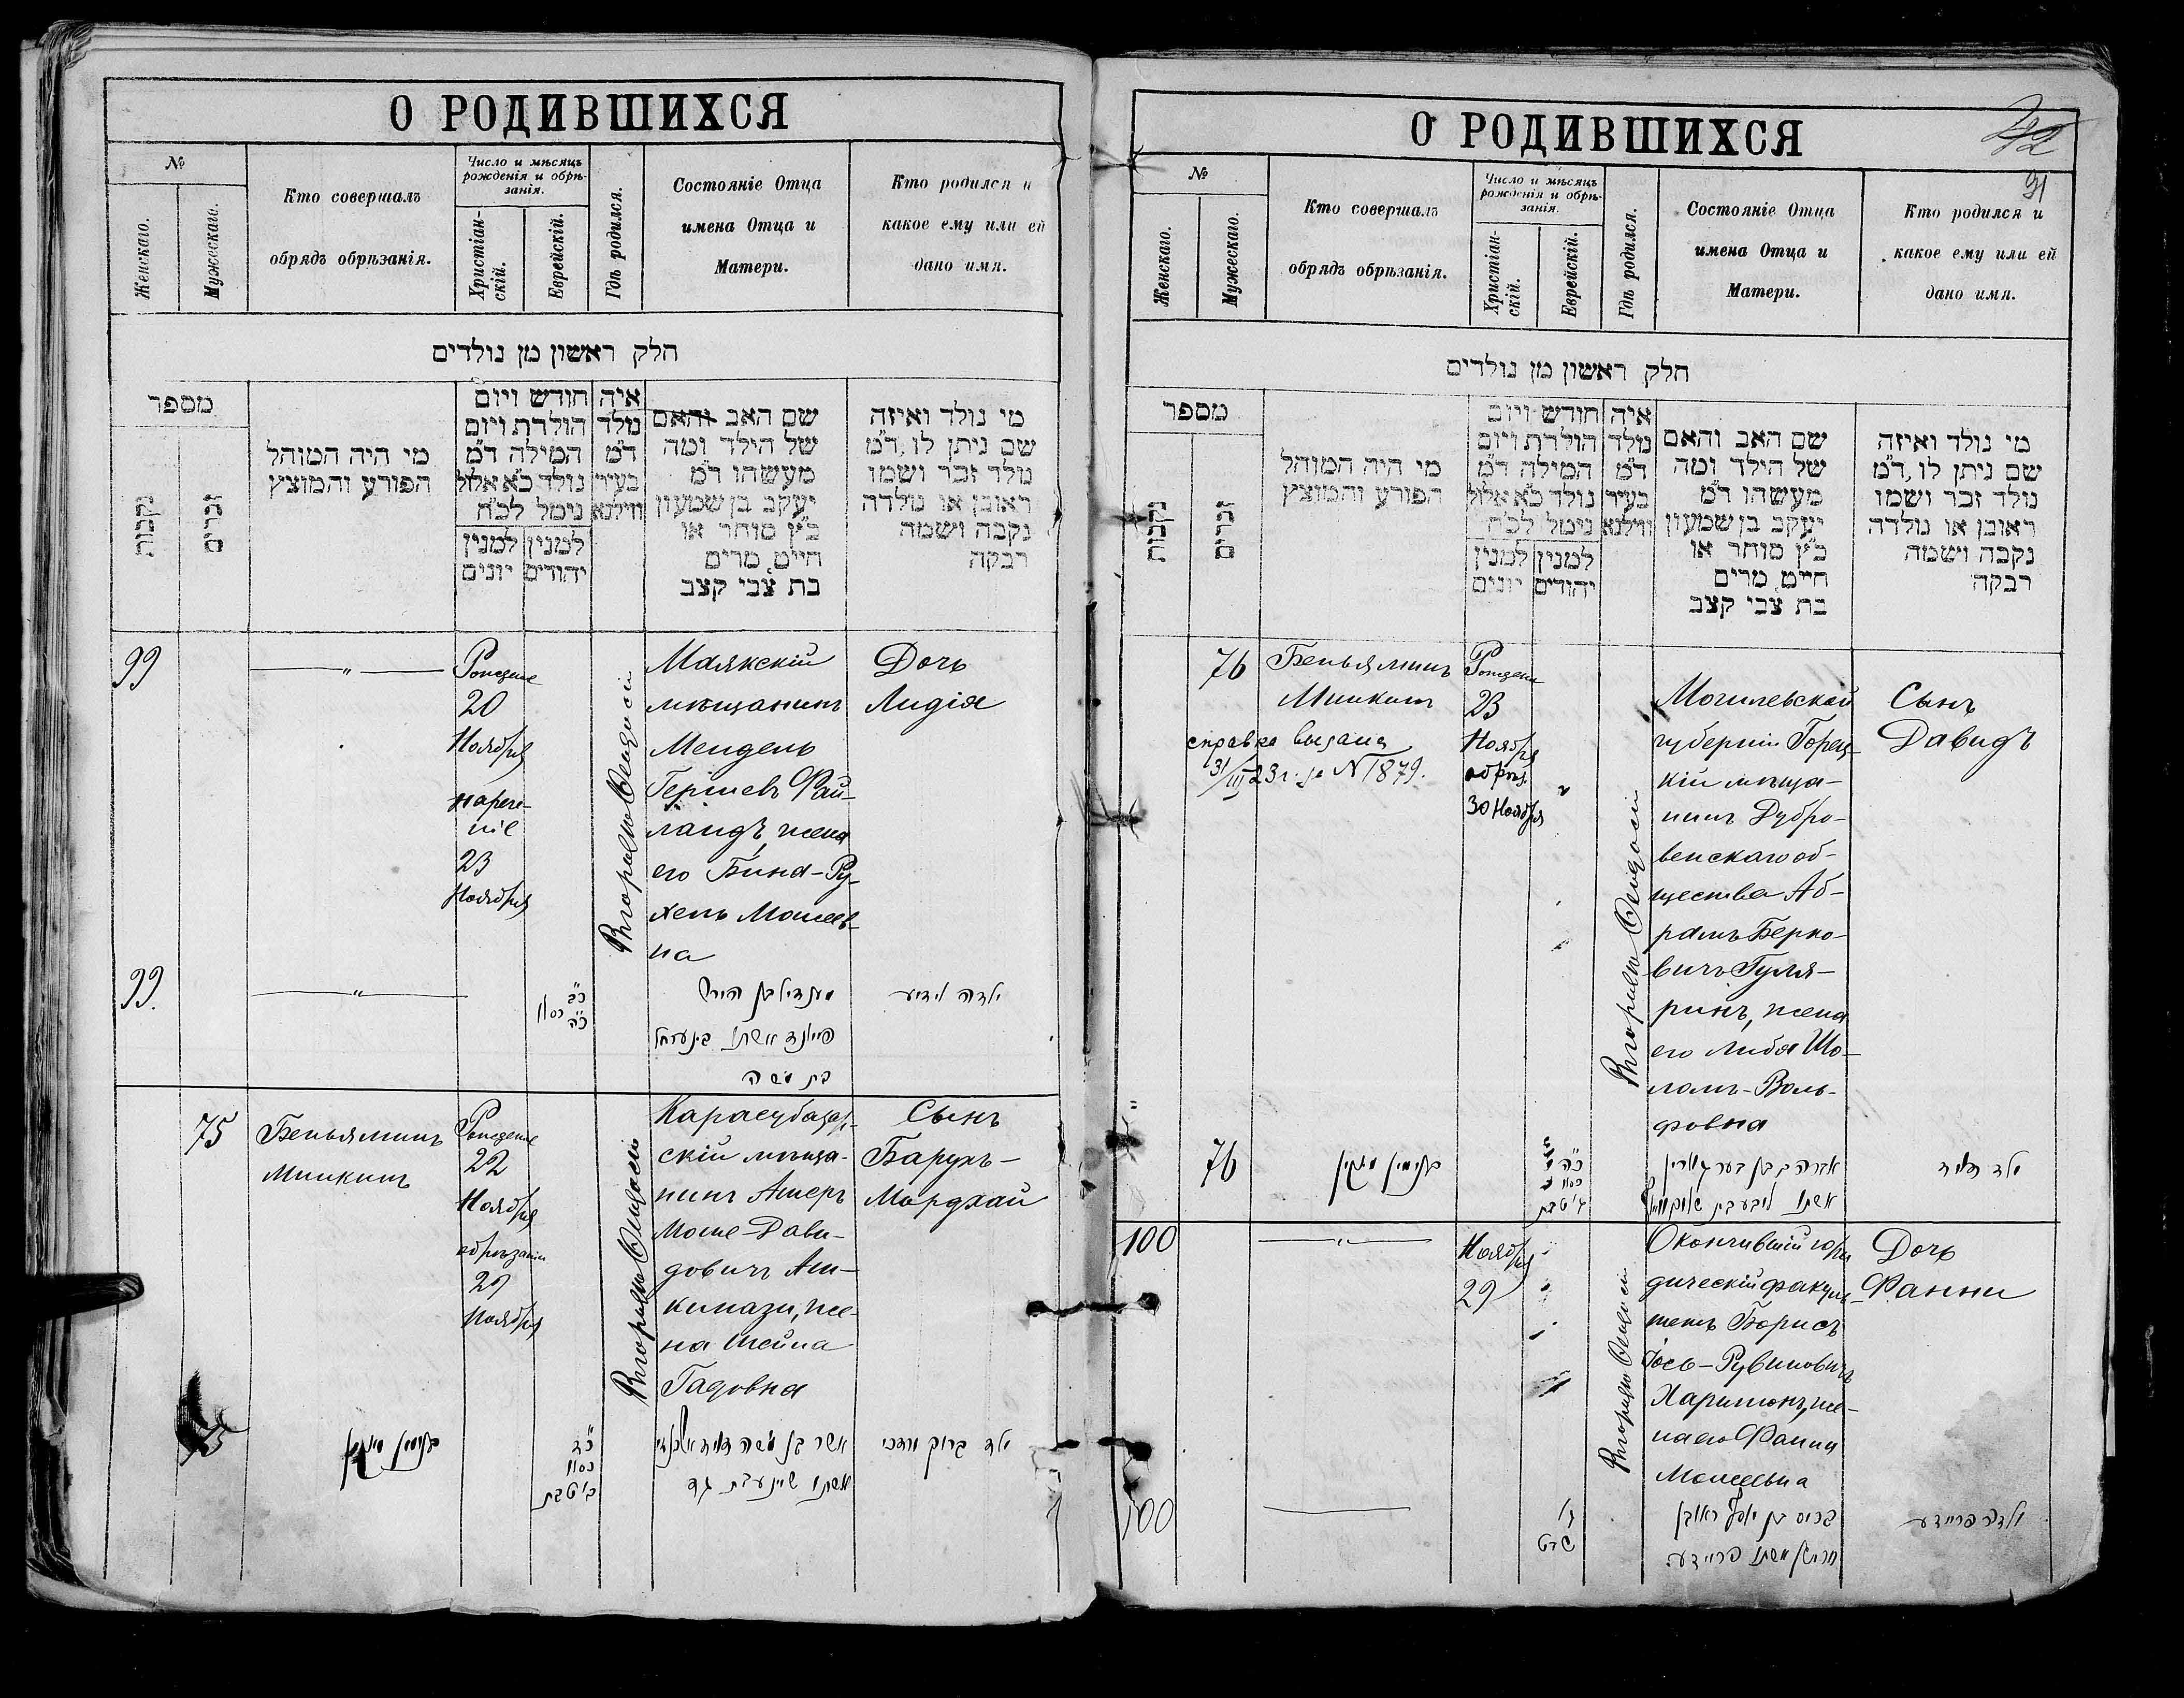 О РОДИВШИХСЯ
№
Женскаго.
Мужескаго.
Кто совершалъ
обрядъ обрѣзанія.
Число и мѣсяцъ
рожденія и обрѣ-
занія.
Христіан-
скій.
Еврейскій.
Гдѣ родился.
Состояніе Отца
имена Отца и
Матери.
Кто родился и
какое ему или ей
дано имя.
חלק ראשון מן נולדים
מספר
נקבות
זכרים
מי היה המוהל
הפורע והמוצץ
חודש ויום
הולדת ויום
המילה ד״מ
נולד כ״א אלול
נימל לכ״ח
למנין
יהודים
למנין
יונים
איה
נולד
ד״מ
בעיר
ווילנא
שם האב והאם
של הילד ומה
מעשהו ד״מ
יעקב בן שמעון
כ״ץ סוחר או
חייט, מרים
בת צבי קצב
מי נולד ואיזה
שם ניתן לו, ד״מ
נולד זכר ושמו
ראובן או נולדה
נקבה ושמה
רבקה
99
20
Ноября
нарече-
ніе
23
Ноября
Маякскій
мѣщанинъ
Мендель
Гершевъ Фай-
ландъ, жена
его Бина-Ру-
хель Моисеев-
на
Дочь
Лидія
99.
כ״ב
כ״ה
כסלו
מענדיל בן הירש
פיילאנד אשתו
בת משה
ילדה לידיע
75
Беньяминъ
Минкинъ
22
Ноября
обрѣзаніе
29
Ноября
Карасубазар-
скій мѣща-
нинъ Ашеръ
Моше-Дави-
довичъ Аш-
кинази, же-
на Шейна
Гадовна
Сынъ
Барухъ-
Мордхай
75
בנימין מינקין
כ״ד
כסלו
ב׳ טבת
אשר בן משה דוד אשכנזי
אשתו שיינע בת גד
ילד ברוך מרדכי
О РОДИВШИХСЯ
42
31
№
Женскаго.
Мужескаго.
Кто совершалъ
обрядъ обрѣзанія.
Число и мѣсяцъ
рожденія и обрѣ-
занія.
Христіан-
скій.
Еврейскій.
Гдѣ родился.
Состояніе Отца
имена Отца и
Матери.
Кто родился и
какое ему или ей
дано имя.
חלק ראשון מן נולדים
מספר
נקבות
זכרים
מי היה המוהל
הפורע והמוצץ
חודש ויום
הולדת ויום
המילה ד״מ
נולד כ״א אלול
נימל לכ״ח
למנין
יהודים
למנין
יונים
איה
נולד
ד״מ
בעיר
ווילנא
שם האב והאם
של הילד ומה
מעשהו ד״מ
יעקב בן שמעון
כ״ץ סוחר או
חייט, מרים
בת צבי קצב
מי נולד ואיזה
שם ניתן לו, ד״מ
נולד זכר ושמו
ראובן או נולדה
נקבה ושמה
רבקה
76
Беньяминъ
Минкинъ
справка выдана
31/III 23 г. за № 1879.
23
Ноября
обрѣз.
30 Ноября
Могилевской
губерніи Горец-
кій мѣща-
нинъ Дубро-
венскаго об-
щества Аб-
рамъ Берко-
вичъ Гуля-
ринъ, жена
его Либа Шо-
ломъ-Воль-
фовна
Сынъ
Давидъ
76
בנימין מינקין
כ״ה
כסלו
ג׳ טבת
אברהם בן בער גולארין
אשתו ליבע בת
ילד דוד
100
Ноября
29
Окончившій юри-
дическій факуль-
тетъ Борисъ
Іось-Рувиновичъ
Харитонъ, же-
на его Фанни
Моисеевна
Дочь
Фанни
100
ג׳
טבת
בריס בן יוסף ראובן
חריטון אשתו פריידע
ילדה פריידע